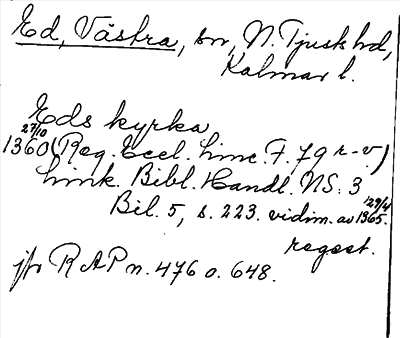 Ed, Västra, sn, N. Tjusts hd,
Kalmar l.
Eds kyrka
27/10
1360 (Reg. Eccl. Linc. F. 79 r-v)
Link. Bibl. Handl. NS. 3
Bil. 5, s. 223. vidim. av 29/4 1365.
regest.
jfr RAP n. 476 o. 648.